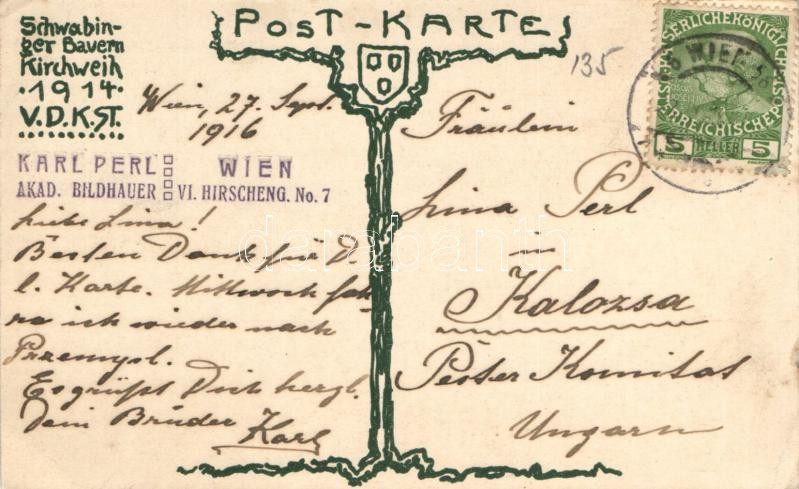 POST-KARTE
Schwabin-
ger Bauern
Kirchweih
· 1914 ·
V.D.K.ST.
135
WIEN
5 HELLER 5
Wien, 27. Sept.
1916
KARL PERL WIEN
AKAD. BILDHAUER VI. HIRSCHENG. No. 7
Liebe Lina!
Besten Dank für D.
l. Karte. Mittwoch fah-
re ich wieder nach
Przemysl.
Es grüßt Dich herzl.
dein Bruder
Karl
Fräulein
Lina Perl
in
Kalozsa
Pester Komitat
Ungarn
darabanth